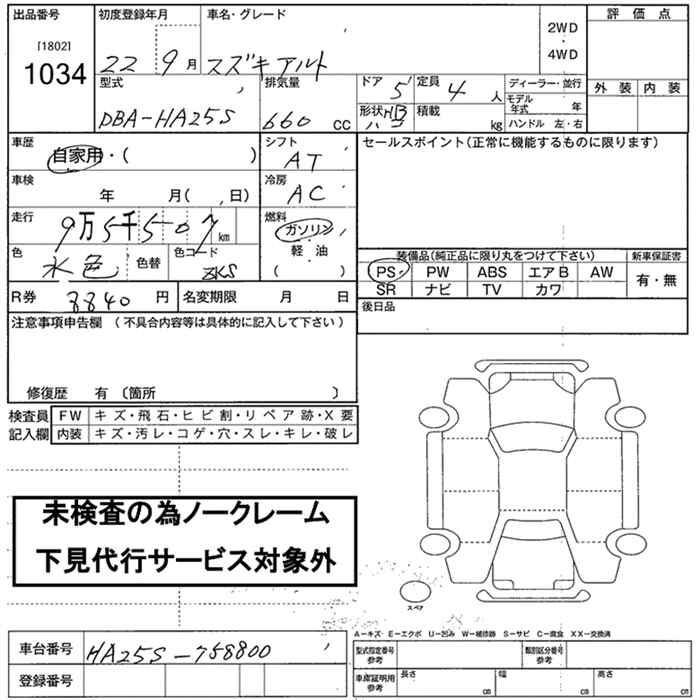 出品番号
[1802]
1034
初度登録年月
22 9月
車名・グレード
スズキアルト
2WD
・
4WD
評価点
外装 内装
型式
DBA-HA25S
排気量
660 CC
ドア 5
定員 4 人
形状 HB
積載 kg
ディーラー・並行
モデル年式 年
ハンドル 左・右
車歴
自家用・( )
シフト
AT
セールスポイント(正常に機能するものに限ります)
車検
年 月( 、日)
冷房
AC
走行
9万5千507 km
燃料
ガソリン
軽・油
( )
色
水色
色替
色コード
ZKS
装備品(純正品に限り丸をつけて下さい)
新車保証書
PS PW ABS エアB AW
有・無
SR ナビ TV カワ
R券
8840 円
名変期限 月 日
後日品
注意事項申告欄 (不具合内容等は具体的に記入して下さい)
修復歴 有 〔箇所 〕
検査員
記入欄
FW キズ・飛石・ヒビ割・リペア跡・X要
内装 キズ・汚レ・コゲ・穴・スレ・キレ・破レ
未検査の為ノークレーム
下見代行サービス対象外
スペア
A−キズ E−エクボ U−凹み W−補修跡 S−サビ C−腐食 XX−交換済
車台番号
HA25S-758800
登録番号
型式指定番号
参考
類別区分番号
参考
車庫証明用
参考
長さ cm
幅 cm
高さ cm